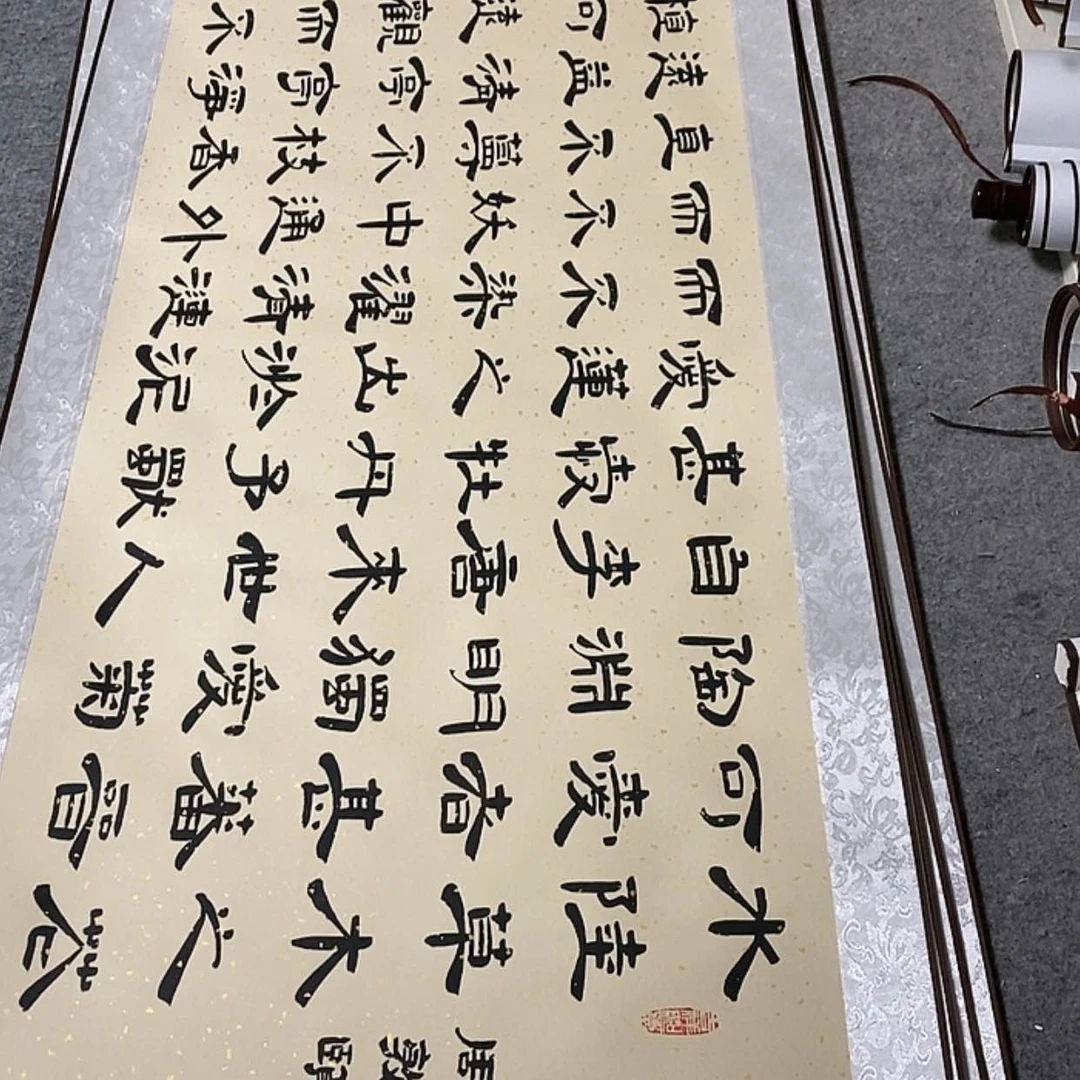 周敦頤
水陸草木之花
可愛者甚蕃晉
陶淵明獨愛菊
自李唐來世人
甚愛牡丹予獨
愛蓮之出淤泥
而不染濯清漣
而不妖中通外
直不蔓不枝香
遠益清亭亭淨
植可遠觀而不